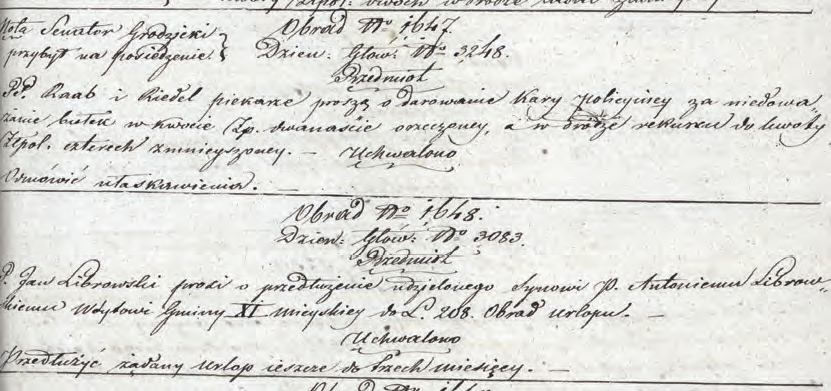 Nota Senator Grodzicki
przybył na posiedzenie.
Obrad No 1647.
Dzien: Głow: No 3248.
Przedmiot
PP. Raab i Riedel piekarze proszą o darowanie Kary policyiney za niedowa-
żenie bułek w kwocie Zp. dwanaście orzeczoney, a w drodze rekursu do kwoty
Złpol. czterech zmnieyszoney. —
Uchwalono
Odmówić ułaskawienia. —
Obrad No 1648.
Dzien: Głów: No 3083.
Przedmiot
P. Jan Librowski prosi o przedłużenie udzielonego Synowi P. Antoniemu Librow-
skiemu Wóytowi Gminy XI mieyskiey do L. 208. Obrad urlopu. —
Uchwalono
Przedłużyć żądany urlop ieszcze do trzech miesięcy. —